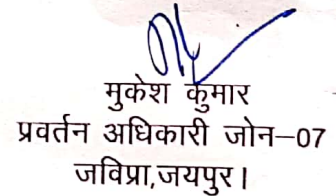 मुकेश कुमार
प्रवर्तन अधिकारी जोन–07
जविप्रा,जयपुर।